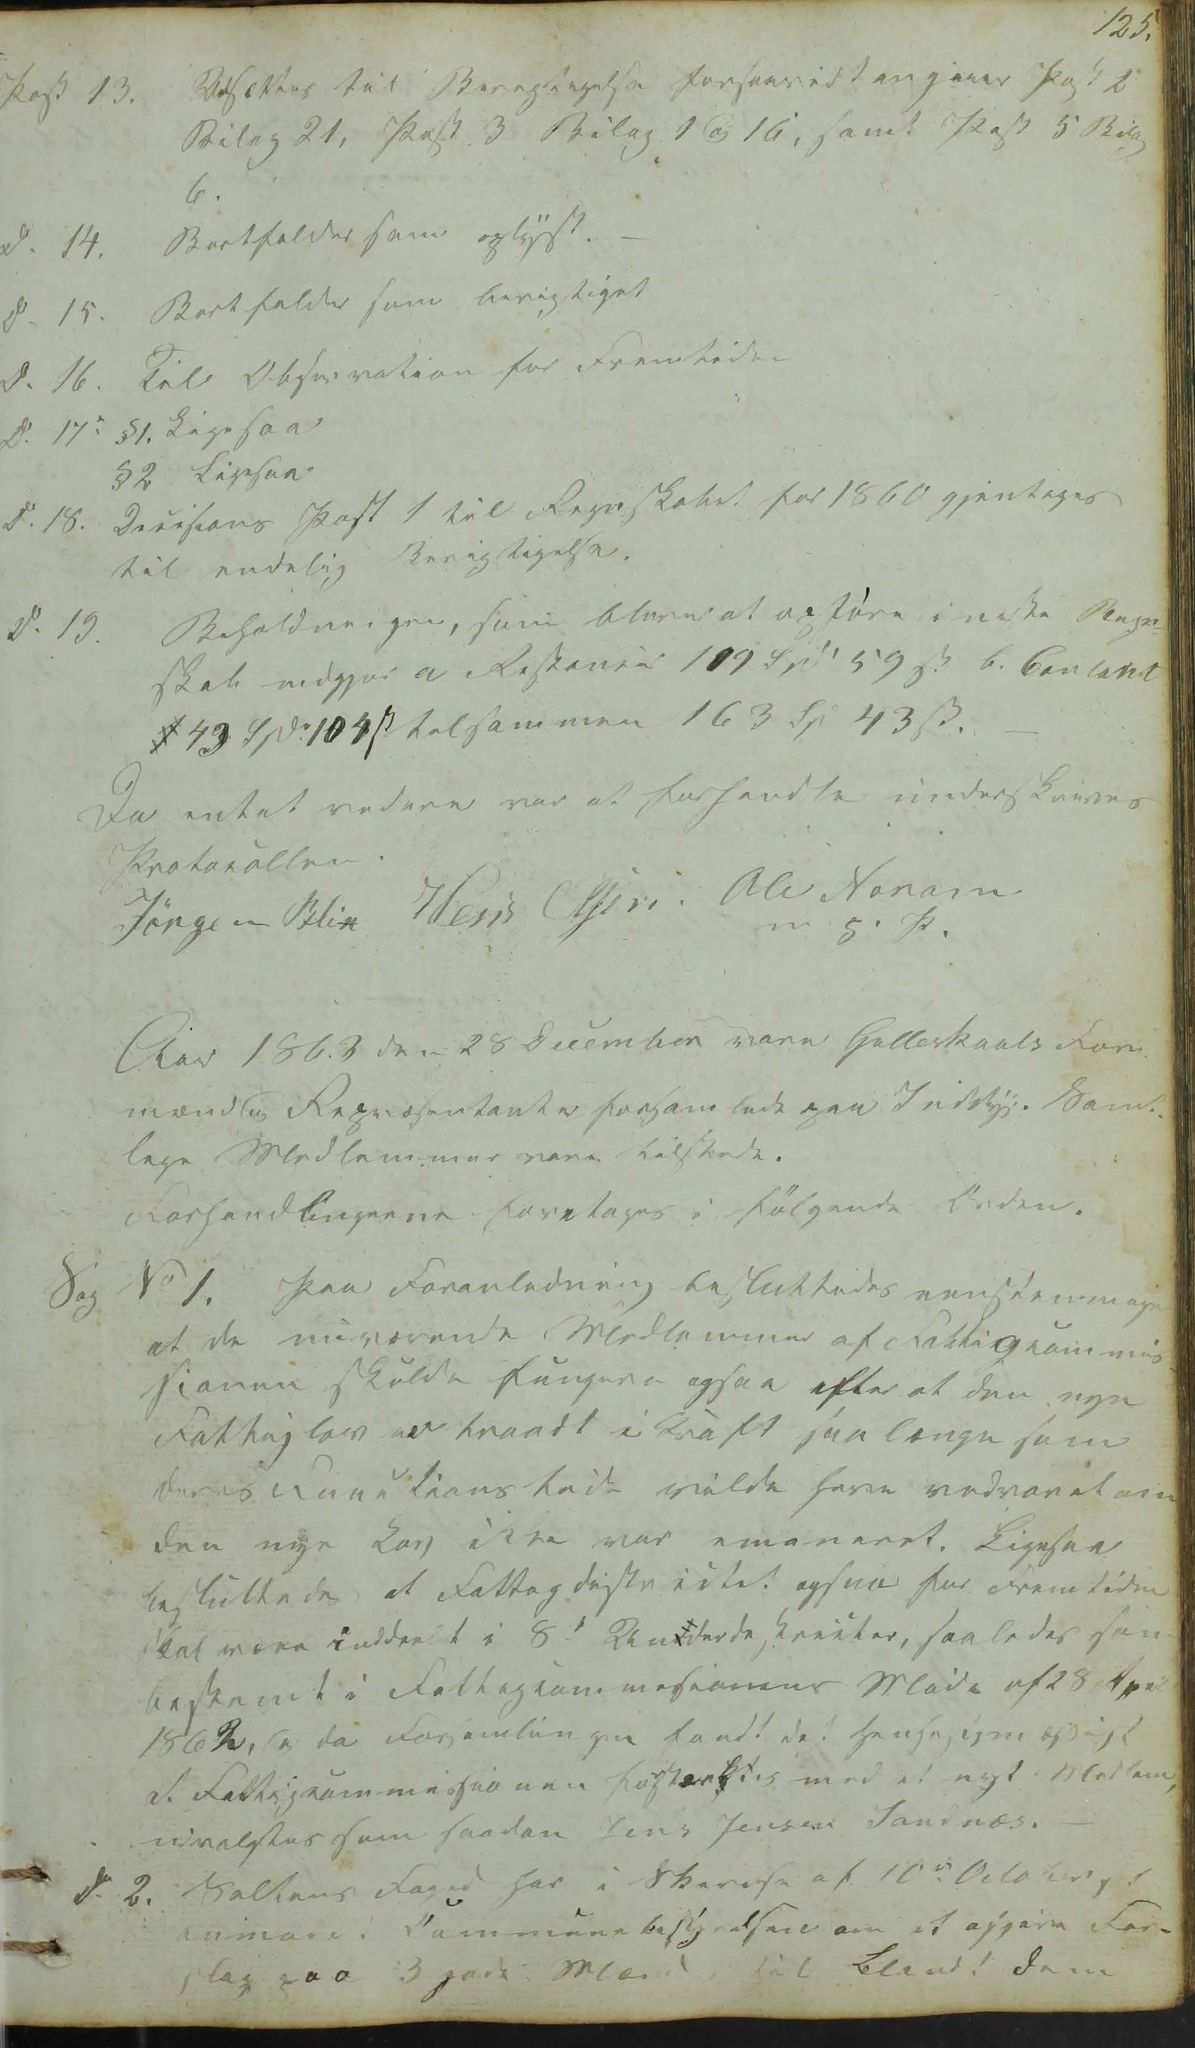 125.
Post 13. Udsættes til Berigtigelse forsaavidt angaaer Post 2
Bilag 21, Post 3 Bilag 1 og 16, samt Post 5 Bilag
6.
Do. 14. Bortfalder som oplyst. —
Do. 15. Bortfalder som berigtiget
Do. 16. Til Observation for Fremtiden
Do. 17. §1. Ligesaa
§2 Ligesaa
Do. 18. Decisions Post 1 til Regnskabet for 1860 gjentages
til endelig Berigtigelse.
Do. 19. Beholdningen, som bliver at opføre i næste Regn-
skab udgjør a Restancer 119 Spd 59 ß b. Contant
43 Spd. 104 ß tilsammen 163 Sp 43 ß. —
Da intet videre var at forhandle underskrives
Protocollen.
Jörgen Blix Ole Noram
m. p. P.
Aar 1863 den 28 December vare Gilleskaals For-
mænd og Repræsentanter forsamlede paa Inddyr. Samt-
lige Medlemmer vare tilstede.
Forhandlingerne foretages i følgende Orden.
Sag No 1. Paa Foranledning besluttedes eenstemmigen
at de nuværende Medlemmer af Fattigkommis-
sionen skulde fungere ogsaa efter at den nye
Fattiglov er traadt i Kraft saa længe som
deres Functions tid vilde have vedvaret om
den nye Lov ikke var emaneret. Ligesaa
besluttedes at Fattigdistrictet ogsaa for Fremtiden
skal være inddeelt i 8 Underdistricter, saaledes som
bestemt i Fattigcommissionens Møde af 28 April
1862, og da Forsamlingen fandt det hensigtsmæssigt
at Fattigkommissionen forstærkes med et nyt Medlem,
udvalgtes som saadan Jens Jensen Sandnæs. —
Do. 2. Saltens Foged har i Skrivelse af 10de October
Communebestyrelsen om at afgive For-
slag paa 3 gode Mænd, til blandt dem